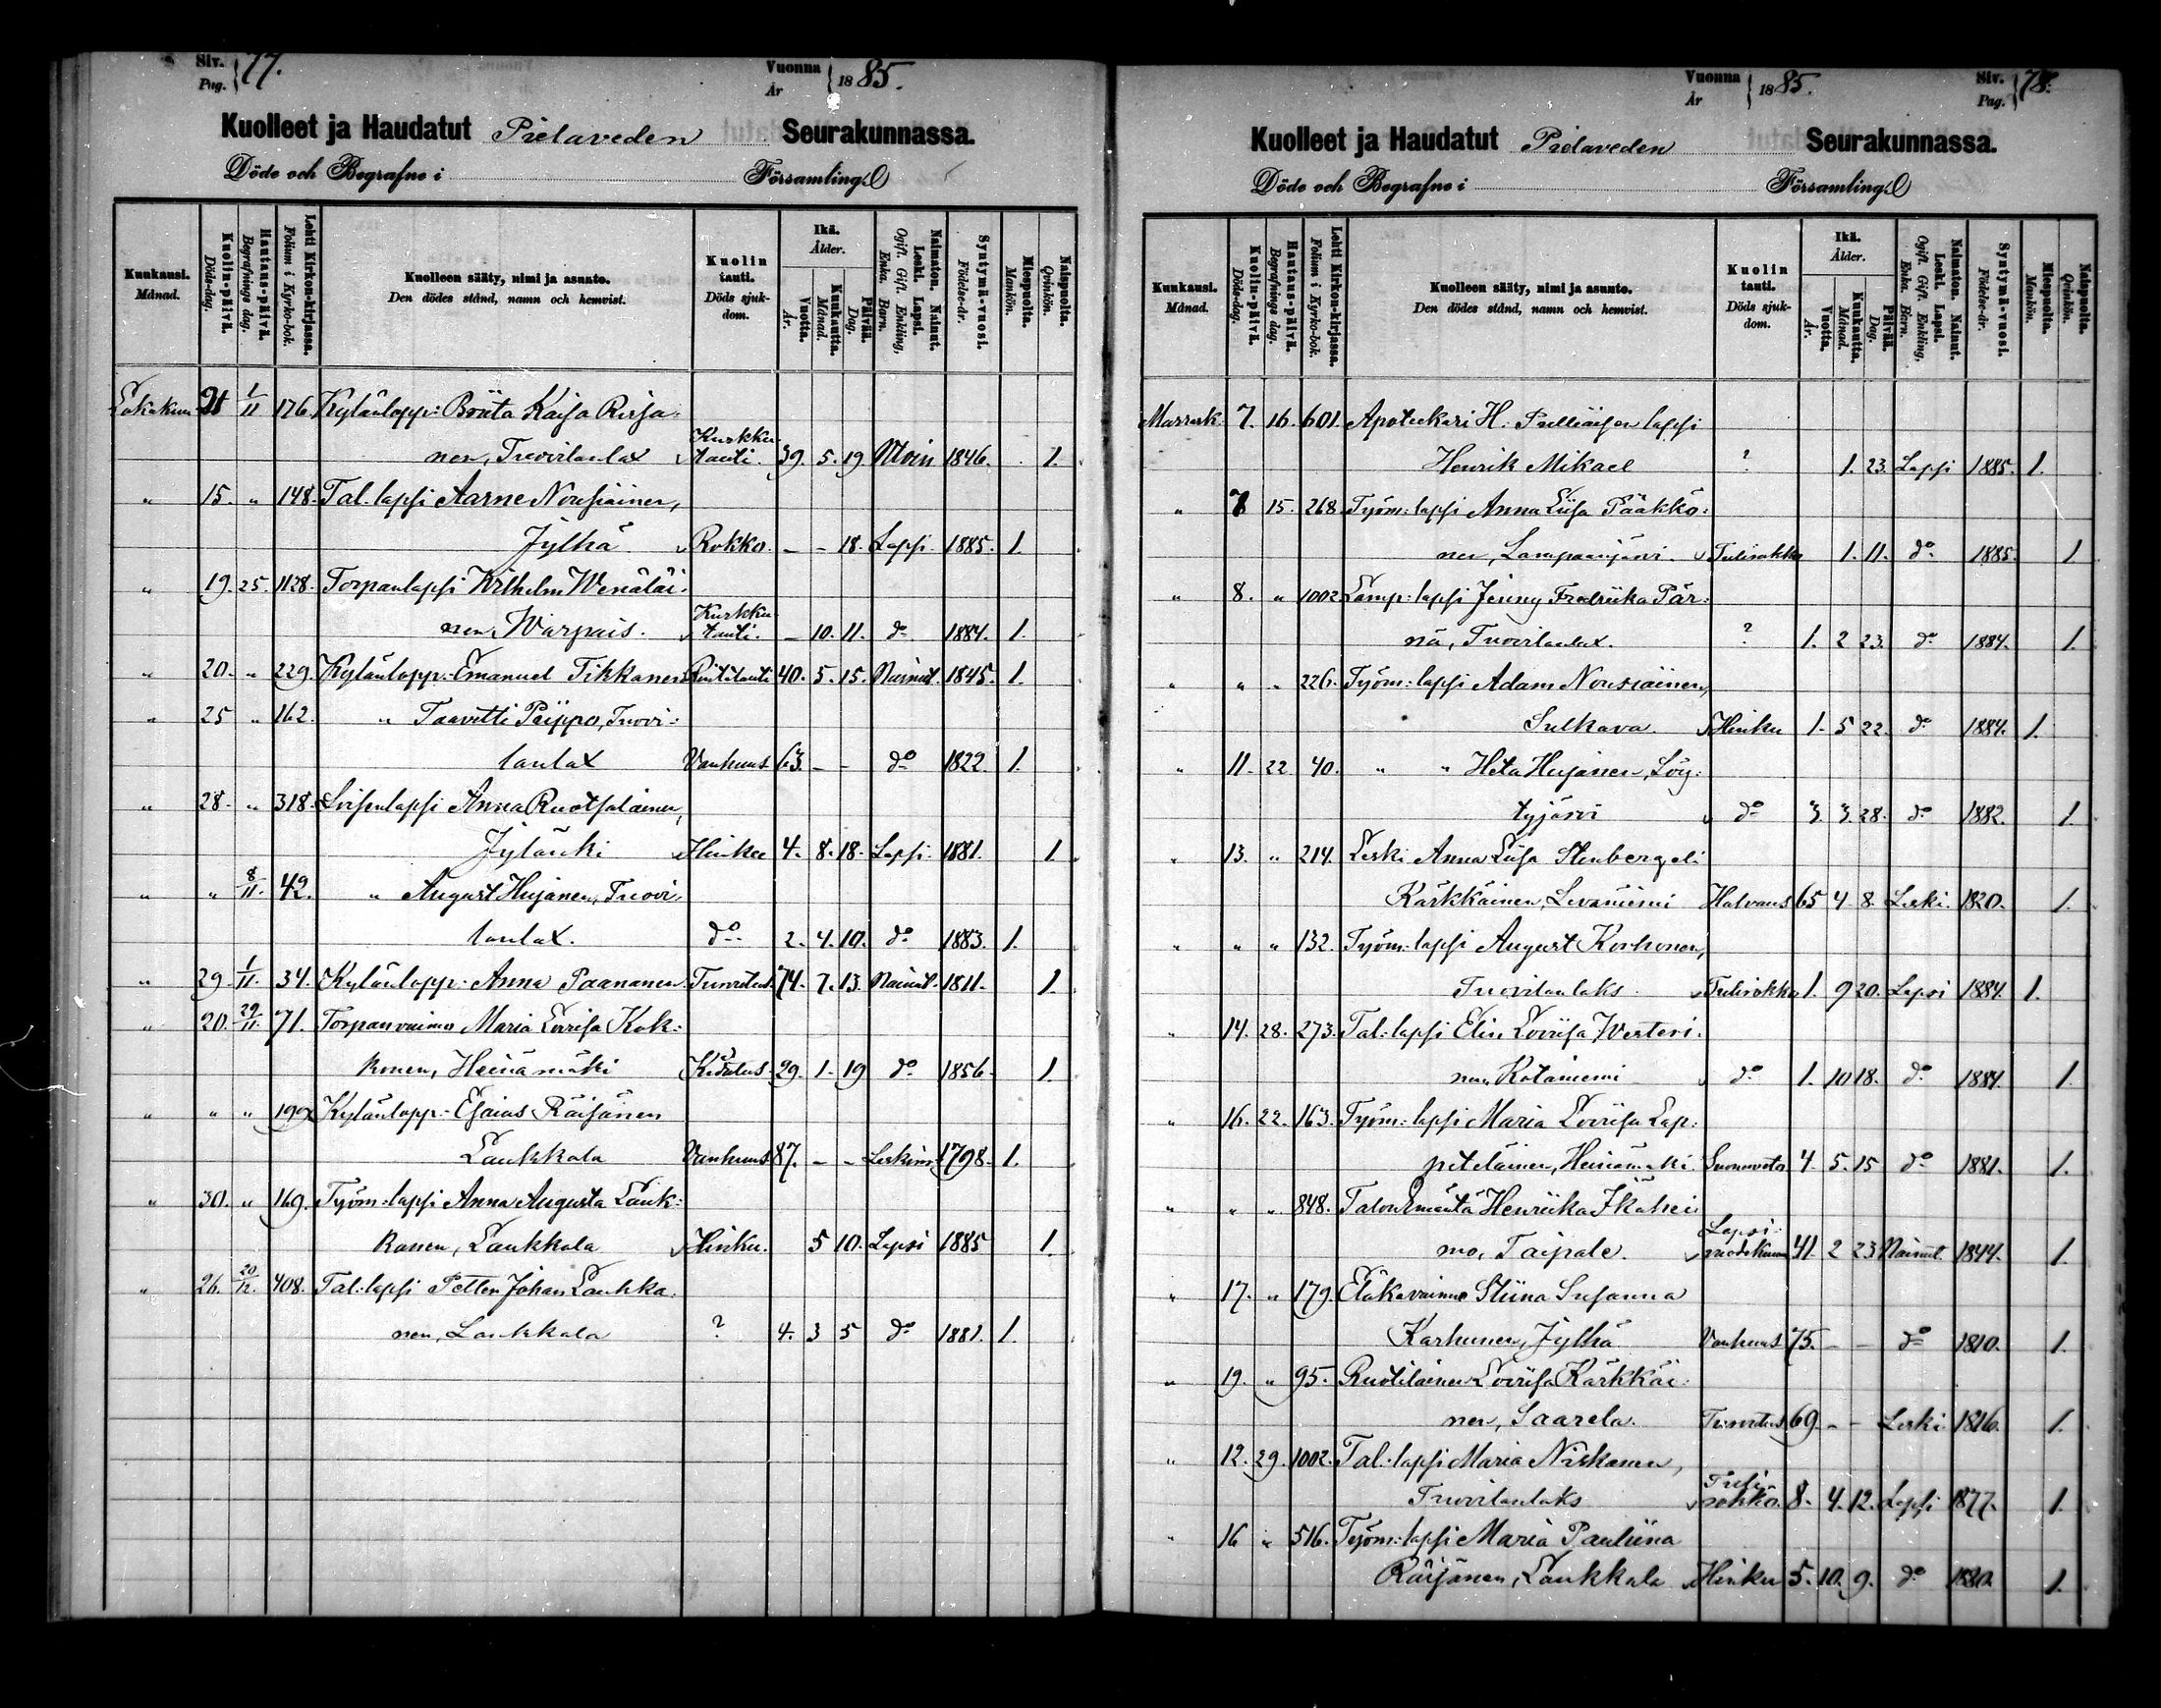 Siv. Pag. 77.
Vuonna År 1885.
Kuolleet ja Haudatut Pielaveden Seurakunnassa.
Döde och Begrafne i Församling.
Kuukausi. Månad.
Kuolin-päivä. Döds-dag.
Hautaus-päivä. Begrafnings dag.
Lehti Kirkon-kirjassa. Folium i Kyrko-bok.
Kuolleen sääty, nimi ja asunto.
Den dödes stånd, namn och hemvist.
Kuolin tauti. Döds sjukdom.
Ikä. Ålder.
Vuotta. År.
Kuukautta. Månad.
Päivää. Dag.
Naimaton. Nainut. Leski. Lapsi.
Ogift. Gift. Enkling, Enka. Barn.
Syntymä-vuosi. Födelse-år.
Miespuolta. Mankön.
Naispuolta. Qvinkön.
Lokakuu 21 1/11 176. Kylänlopp: Briita Kaisa Reija-
nen, Tuovilanlax Kurkku-tauti. 39. 5. 19. 1846. 1.
" 15. " 148. Tal. lapsi Aarne Nousiainen,
Jylhä Rokko. - - 18. Lapsi. 1885. 1.
" 19. 25. 1128. Torpanlapsi Wilhelm Wenäläi-
nen, Warpais. Kurkku tauti. - 10. 11. do 1884. 1.
" 20. " 229. Kylänlopp: Emanuel Tikkanen 40. 5. 15. Nainut. 1845. 1.
" 25 " 162. " Taavetti Piippo, Tuovi-
lanlax Vanhuus 63. - - do 1822. 1.
" 28. " 318. Loisenlapsi Anna Ruotsalainen,
Jylänki Hinku 4. 8. 18. Lapsi. 1881. 1.
" " 8/11. 42. " August Hujanen, Tuovi-
lanlax. do 2. 4. 10. do 1883. 1.
" 29. 1/11. 34. Kylänlopp: Anna Paananen 74. 7. 13. Nainut. 1811. 1.
" 20. 29/11. 71. Torpanvaimo Maria Loviisa Kok-
konen, Heinämäki 29. 1. 19 do 1856. 1.
" " " 199 Kylänlopp: Esaias Räisänen
Laukkala Vanhuus 87. - - Leskim. 1798. 1.
" 30. " 169. Työm: lapsi Anna Augusta Lauk-
kanen, Laukkala Hinku. 5 10. Lapsi 1885 1.
" 26. 20/12. 408. Tal. lapsi Petter Johan Laukka-
nen, Laukkala ? 4. 3 5 do 1881. 1.
Vuonna År 1885.
Siv. Pag. 78.
Kuolleet ja Haudatut Pielaveden Seurakunnassa.
Döde och Begrafne i Församling.
Kuukausi. Månad.
Kuolin-päivä. Döds-dag.
Hautaus-päivä. Begrafnings dag.
Lehti Kirkon-kirjassa. Folium i Kyrko-bok.
Kuolleen sääty, nimi ja asunto.
Den dödes stånd, namn och hemvist.
Kuolin tauti. Döds sjukdom.
Ikä. Ålder.
Vuotta. År.
Kuukautta. Månad.
Päivää. Dag.
Naimaton. Nainut. Leski. Lapsi.
Ogift. Gift. Enkling, Enka. Barn.
Syntymä-vuosi. Födelse-år.
Miespuolta. Mankön.
Naispuolta. Qvinkön.
Marrask. 7. 16. 601. Apoteekari H. lapsi
Henrik Mikael ? 1. 23. Lapsi 1885. 1.
" 7 15. 268. Työm: lapsi Anna Liisa Pääkkö-
nen, Lampaanjärvi. Tulirokko 1. 11. do 1885. 1
" 8. " 1002. Lamp: lapsi Jenny Fredriika Pär-
nä, Tuovilanlax. ? 1. 2 23. do 1884. 1.
" " " 226. Työm: lapsi Adam Nousiainen,
Sulkava. Hinku 1. 5 22. do 1884. 1.
" 11. 22. 40. " " Heta Hujanen, Löy-
tyjärvi do 3. 3. 28. do 1882. 1.
" 13. " 214. Leski Anna Liisa Stenberg eli
Kärkkäinen, Levaniemi Halvaus 65 4 8. Leski. 1820. 1.
" " " 132. Työm: lapsi August Korhonen,
Tuovilanlaks. Tulirokko 1. 9 20. Lapsi 1884. 1.
" 14. 28. 273. Tal: lapsi Elin Loviisa Westeri-
nen, Kotaniemi do 1. 10 18. do 1884. 1.
" 16. 22. 163. Työm: lapsi Maria Loviisa Lap-
peteläinen, Heinämäki 4. 5. 15 do 1881. 1.
" " " 848. Talon Emäntä Henriika Ikähei-
mo, Taipale. Lapsi- 41. 2 23. Nainut. 1844. 1.
" 17. " 179. Eläkevaimo Stiina Susanna
Karhunen, Jylhä Vanhuus 75. - - do 1810. 1.
" 19. " 95. Ruotilainen Loviisa Kärkkäi-
nen, Saarela. 69. - - Leski 1816. 1.
" 12. 29. 1002. Tal: lapsi Maria Niskanen,
Tuovilanlaks Tulirokko. 8. 4. 12. Lapsi 1877. 1.
" 16 " 516. Työm: lapsi Maria Pauliina
Räisänen, Laukkala Hinku 5. 10. 9. do 1880. 1.